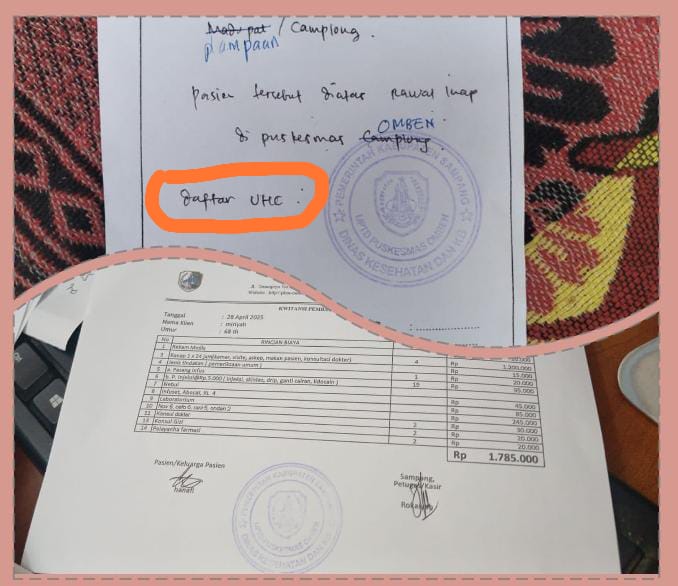 Madupat / Camplong.
plampaan
pasien tersebut diatas rawat inap
OMBEN
di puskesmas Camplong.
daftar UHC :
PEMERINTAH KABUPATEN SAMPANG
UPTD PUSKESMAS OMBEN
DINAS KESEHATAN DAN KB
KWITANSI
Tanggal : 28 April 2025
Nama Klien : miniyah
Umur : 68 th
No RINCIAN BIAYA
1 Rekam Medis
3 Ranap 1 x 24 jam(kamar, visite, askep, makan pasien, konsultasi dokter) 4 Rp 1.200.000
4 Jenis tindakan ( pemeriksaan umum ) Rp 15.000
5 a. Pasang Infus 1 Rp 20.000
6 b. P. Injeksi@Rp.5.000 ( injeksi, skintes, drip, ganti cairan, lidocain ) 19 Rp 95.000
7 Nebul
8 Infuset, Abocat, RL 4 Rp 45.000
9 Laboratorium Rp 85.000
10 Rp 245.000
11 Konsul dokter 2 Rp 30.000
13 Konsul Gizi 2 Rp 20.000
14 Pelayanna farmasi 2 Rp 20.000
Rp 1.785.000
Pasien/Keluarga Pasien
Sampang,
Petugas/Kasir
hanafi
PEMERINTAH KABUPATEN
UPTD PUSKESMAS OMBEN
DINAS KESEHATAN DAN KB